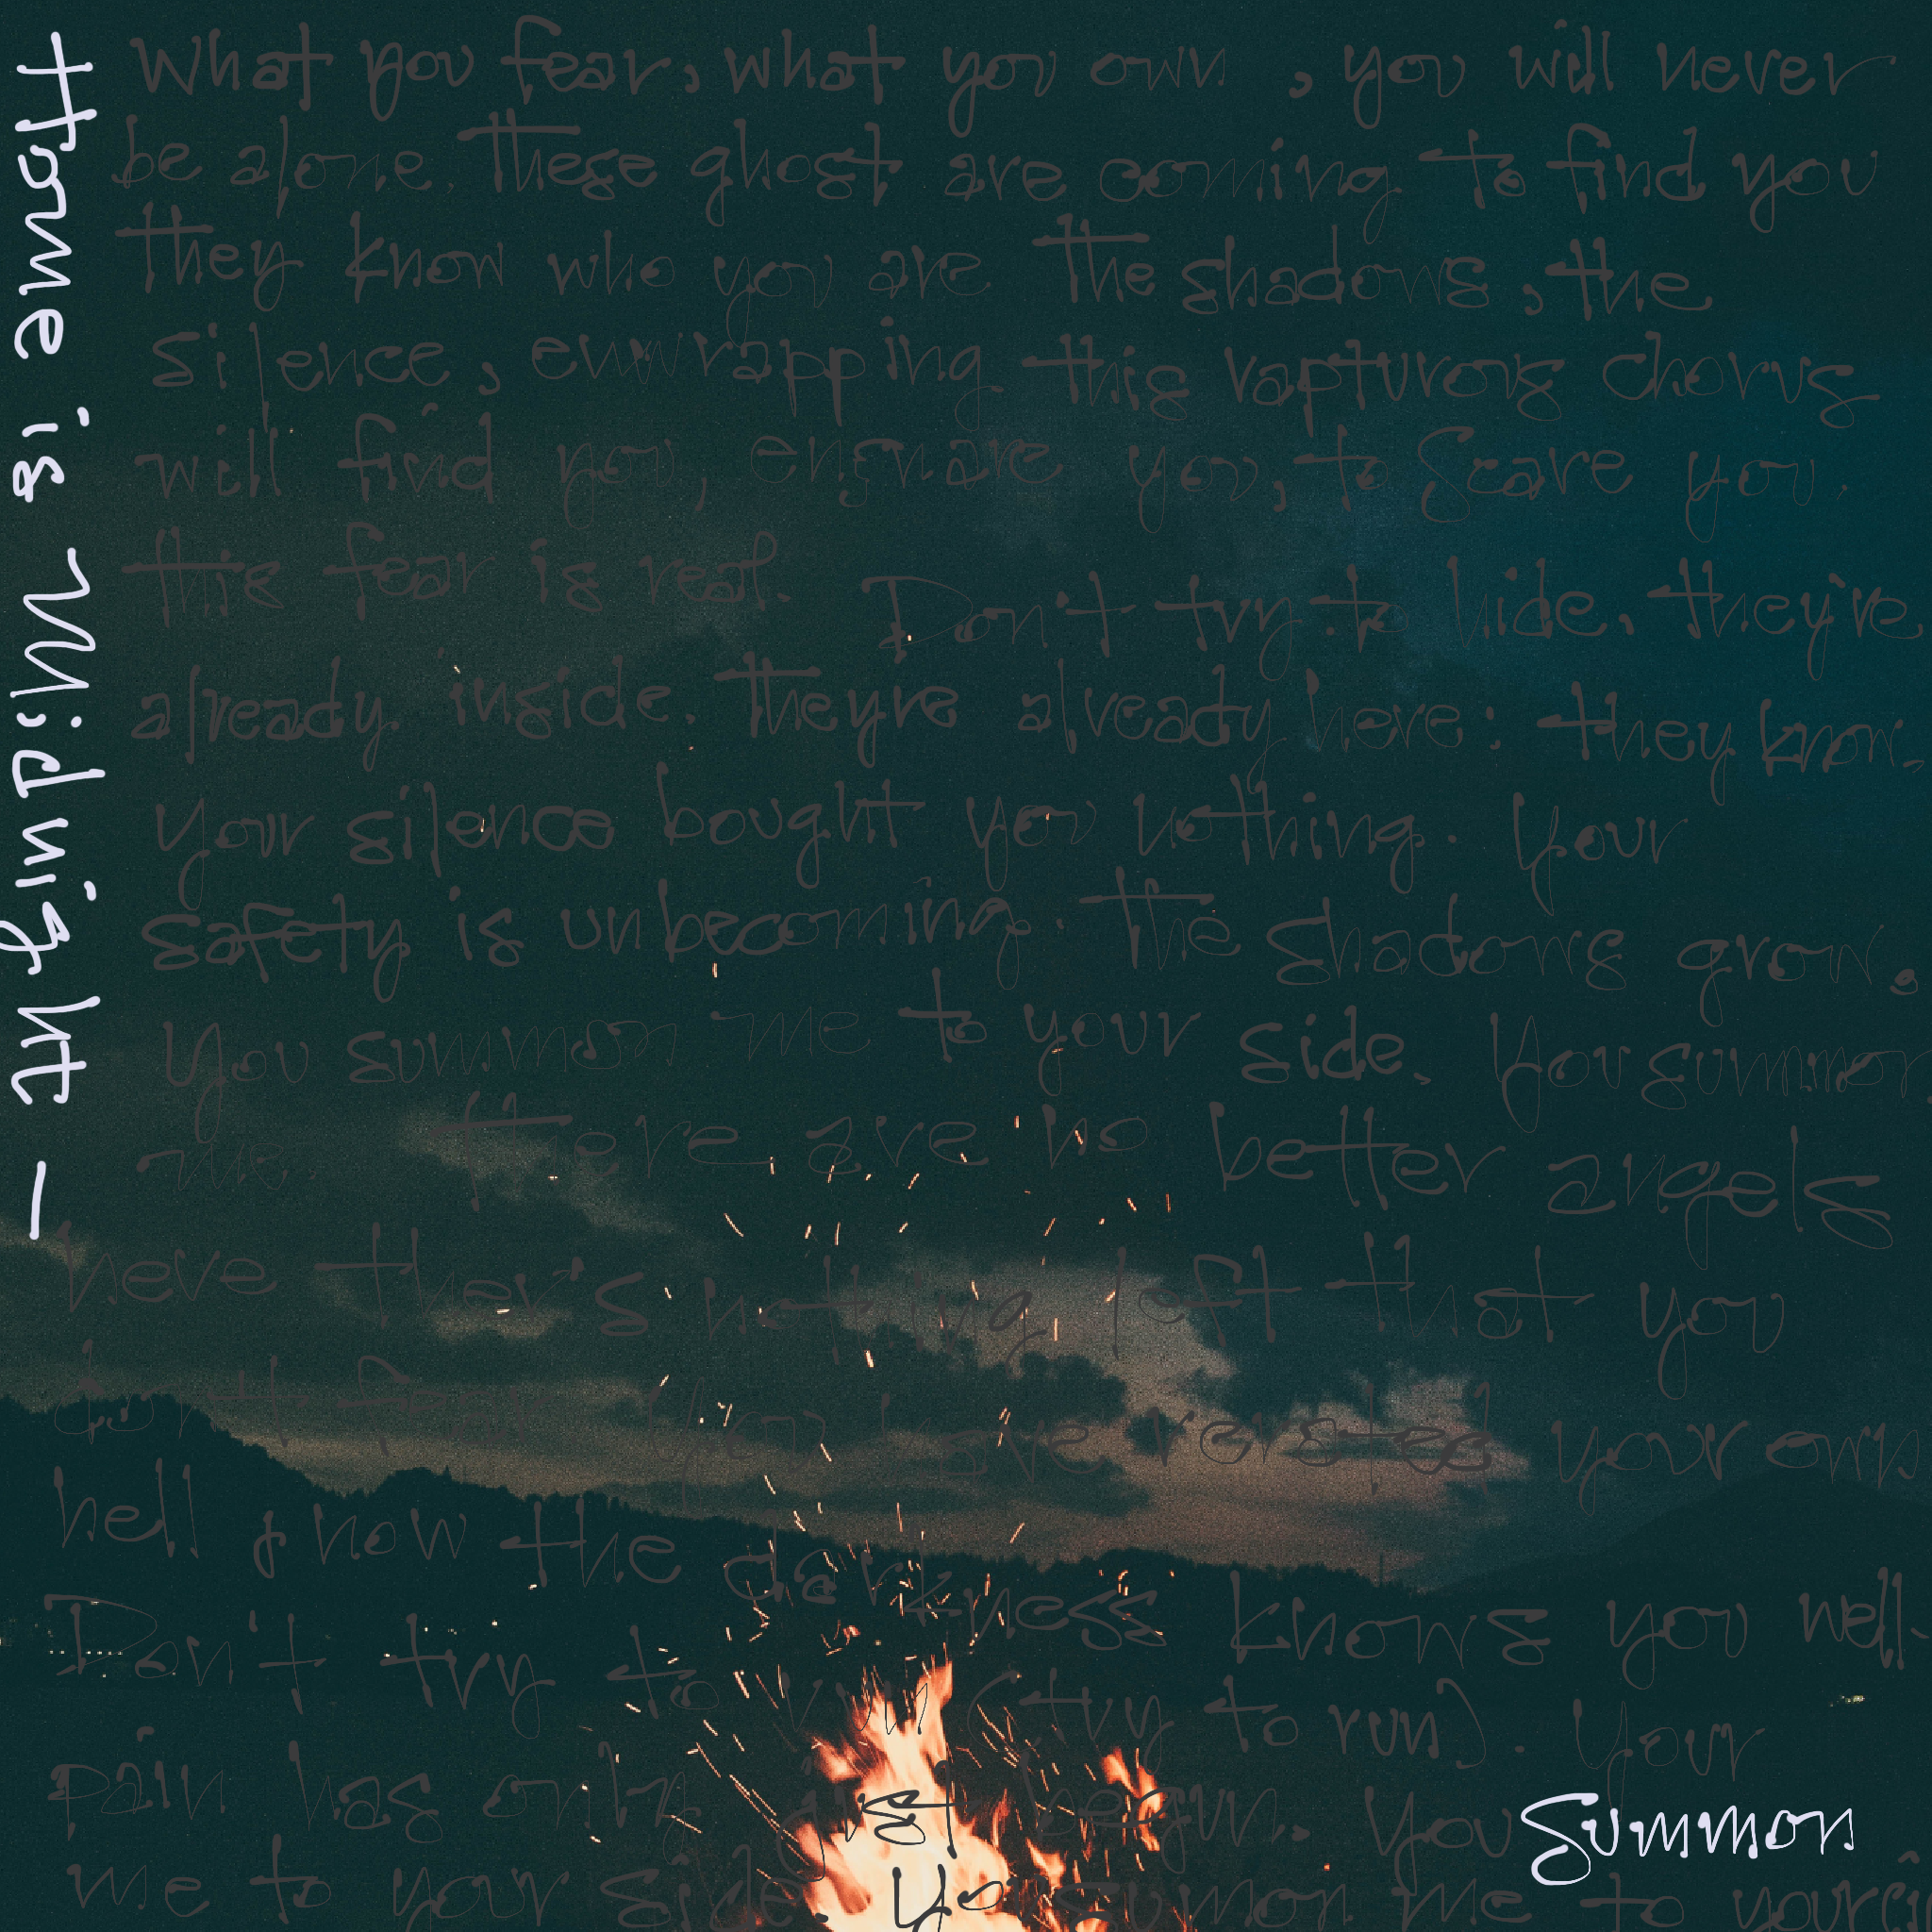 Home is Midnight —
What you fear, what you own, you will never
be alone. These ghost are coming to find you
they know who you are The shadows, the
silence, enwrapping this rapturous chorus
will find you, ensnare you, to scare you.
this fear is real. Don't try to hide, they're
already inside. They're already here: they know.
Your silence bought you nothing. Your
safety is unbecoming. The shadows grow.
You summon me to your side. You summon
me. There are no better angels
here ther's nothing left that you
don't fear. You have reysted your own
hell & now the darkness knows you well.
Don't try to run (try to run). Your
pain has only just begun. You Summon
me to your side. You summon me to your si